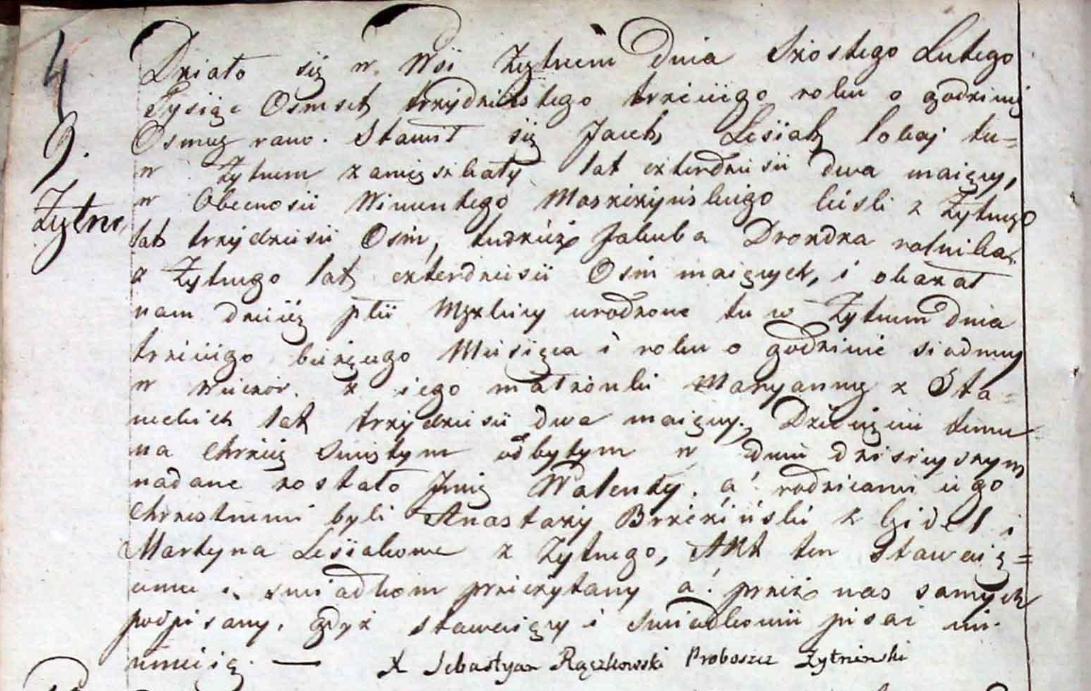 4
9.
Żytne
Działo się w Wsi Żytnem Dnia Szóstego Lutego
Tysiąc Osmset trzydziestego trzeciego roku o godzinie
Osmey rano. Stawił się Jacek Lesiak lokaj tu=
w Żytnem zamięszkały lat czterdzieści dwa maiący,
w Obecności Wincentego Moszczyńskiego cieśli z Żytnego
lat trzydzieści Osm, tudzież Jakuba Drozdza rolnika
z Żytnego lat czterdzieści Osm maiących, i okazał
nam dziecię płci Męzkiey urodzone tu w Żytnem dnia
trzeciego bieżącego Miesiąca i roku o godzinie siodmey
w wieczor. z iego małżonki Maryanny z Sta=
nieckich lat trzydzieści dwa maiącey, Dziecięciu temu
na chrzcie świętym odbytym w dniu dzisieyszym
nadane zostało Jmię Walenty. a rodzicami iego
chrzestnemi byli Anastazy Brzeziński z Gidel i
Martyna Lesiakowa z Żytnego, Akt ten stawaią=
cemu i świadkom przeczytany a przez nas samych
podpisany, gdyż stawaiący i świadkowie pisać nie
umieią. — X Sebastyan Rączkowski Proboszcz Żytniowski